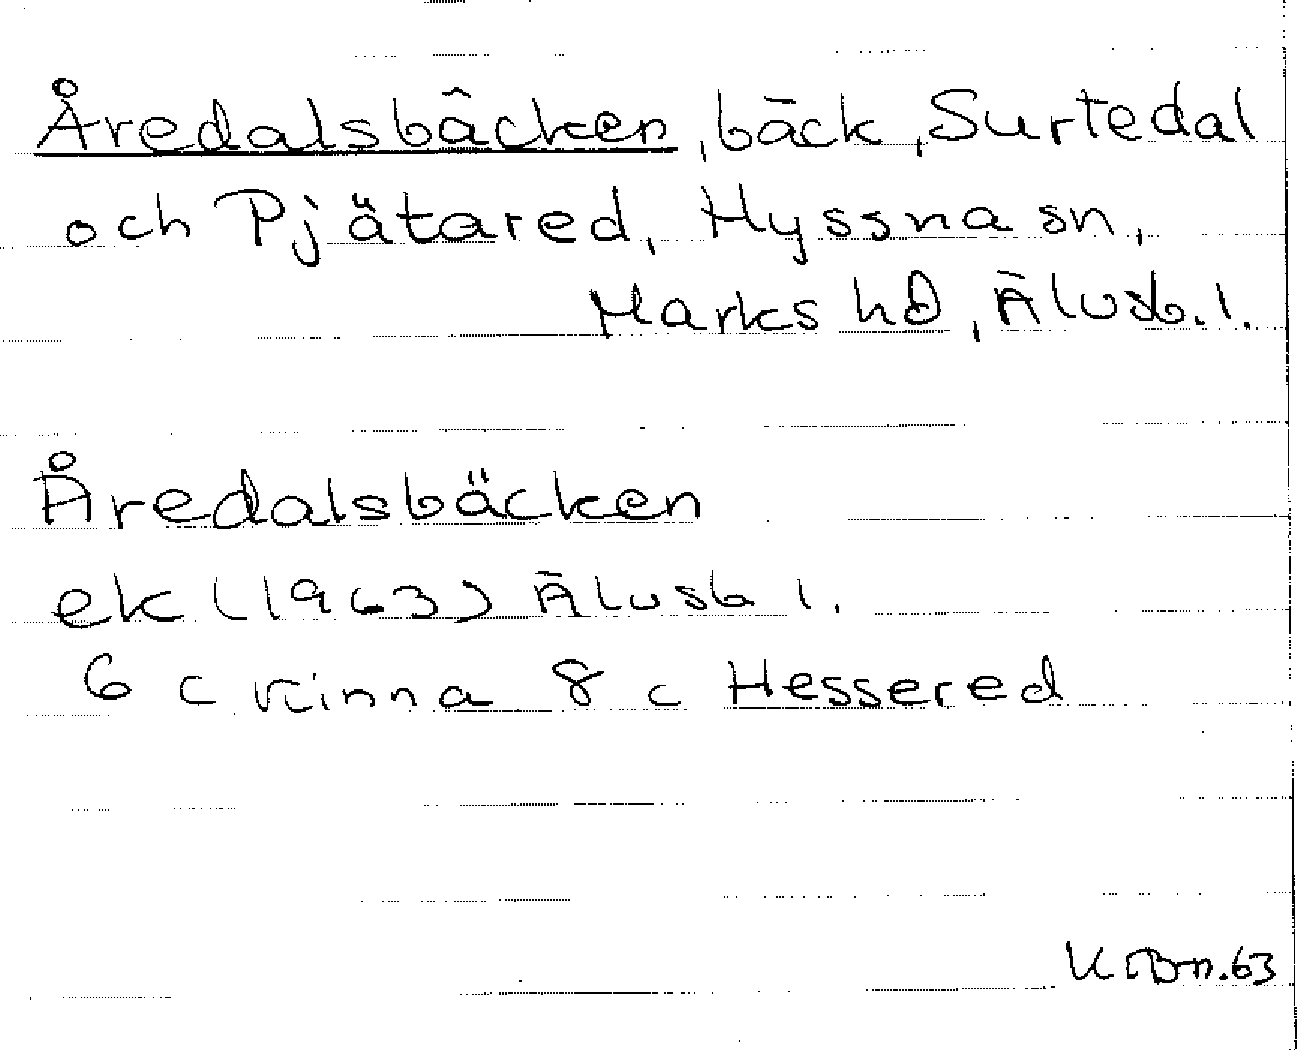 Åredalsbäcken, bäck, Surtedal
och Pjätared, Hyssna sn,
Marks hd, Älvsb. l.
Åredalsbäcken
ek (1963) Älvsb l.
6 c Kinna 8 c Hessered
63